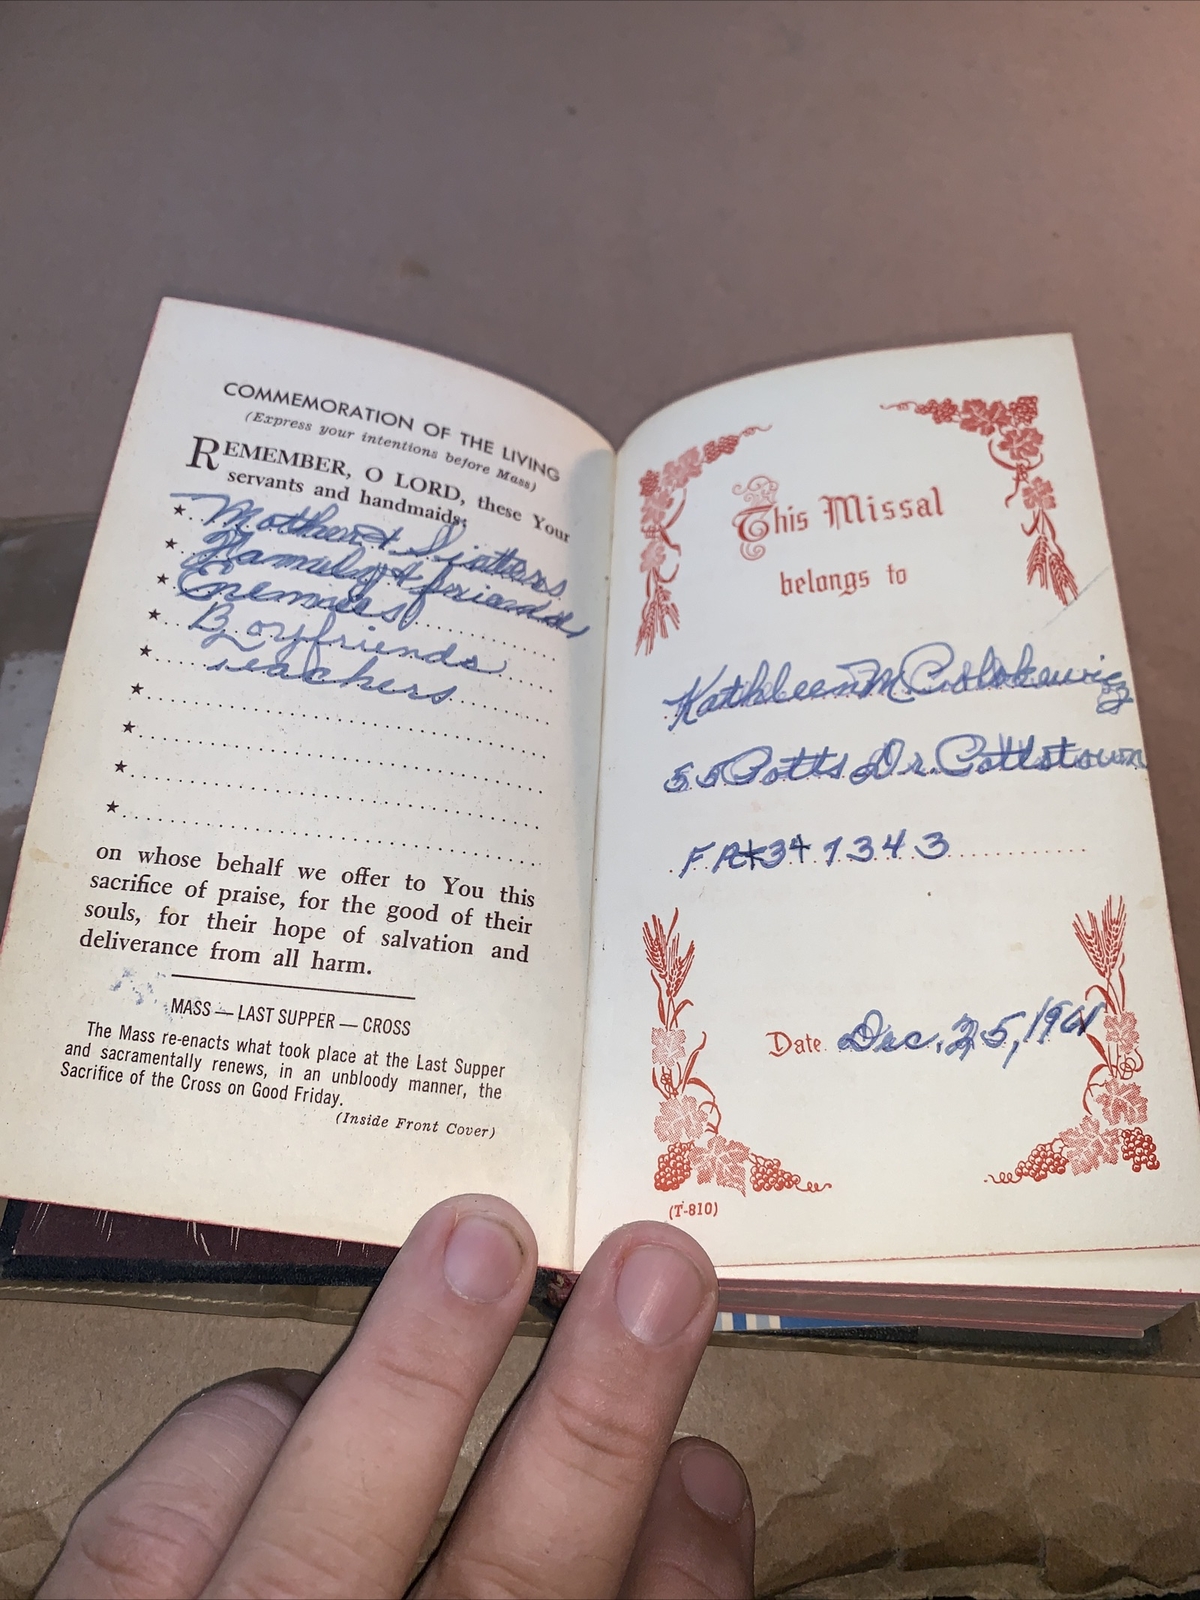 COMMEMORATION OF THE LIVING
(Express your intentions before Mass)
REMEMBER, O LORD, these Your
servants and handmaids:
Mother & Sisters
Family & friends
Enemies
Boyfriends
Teachers
on whose behalf we offer to You this
sacrifice of praise, for the good of their
souls, for their hope of salvation and
deliverance from all harm.
MASS — LAST SUPPER — CROSS
The Mass re-enacts what took place at the Last Supper
and sacramentally renews, in an unbloody manner, the
Sacrifice of the Cross on Good Friday.
(Inside Front Cover)
This Missal
belongs to
Kathleen M.
55 Potts Dr. Pottstown
1343
Date Dec. 25, 1961
(T-810)